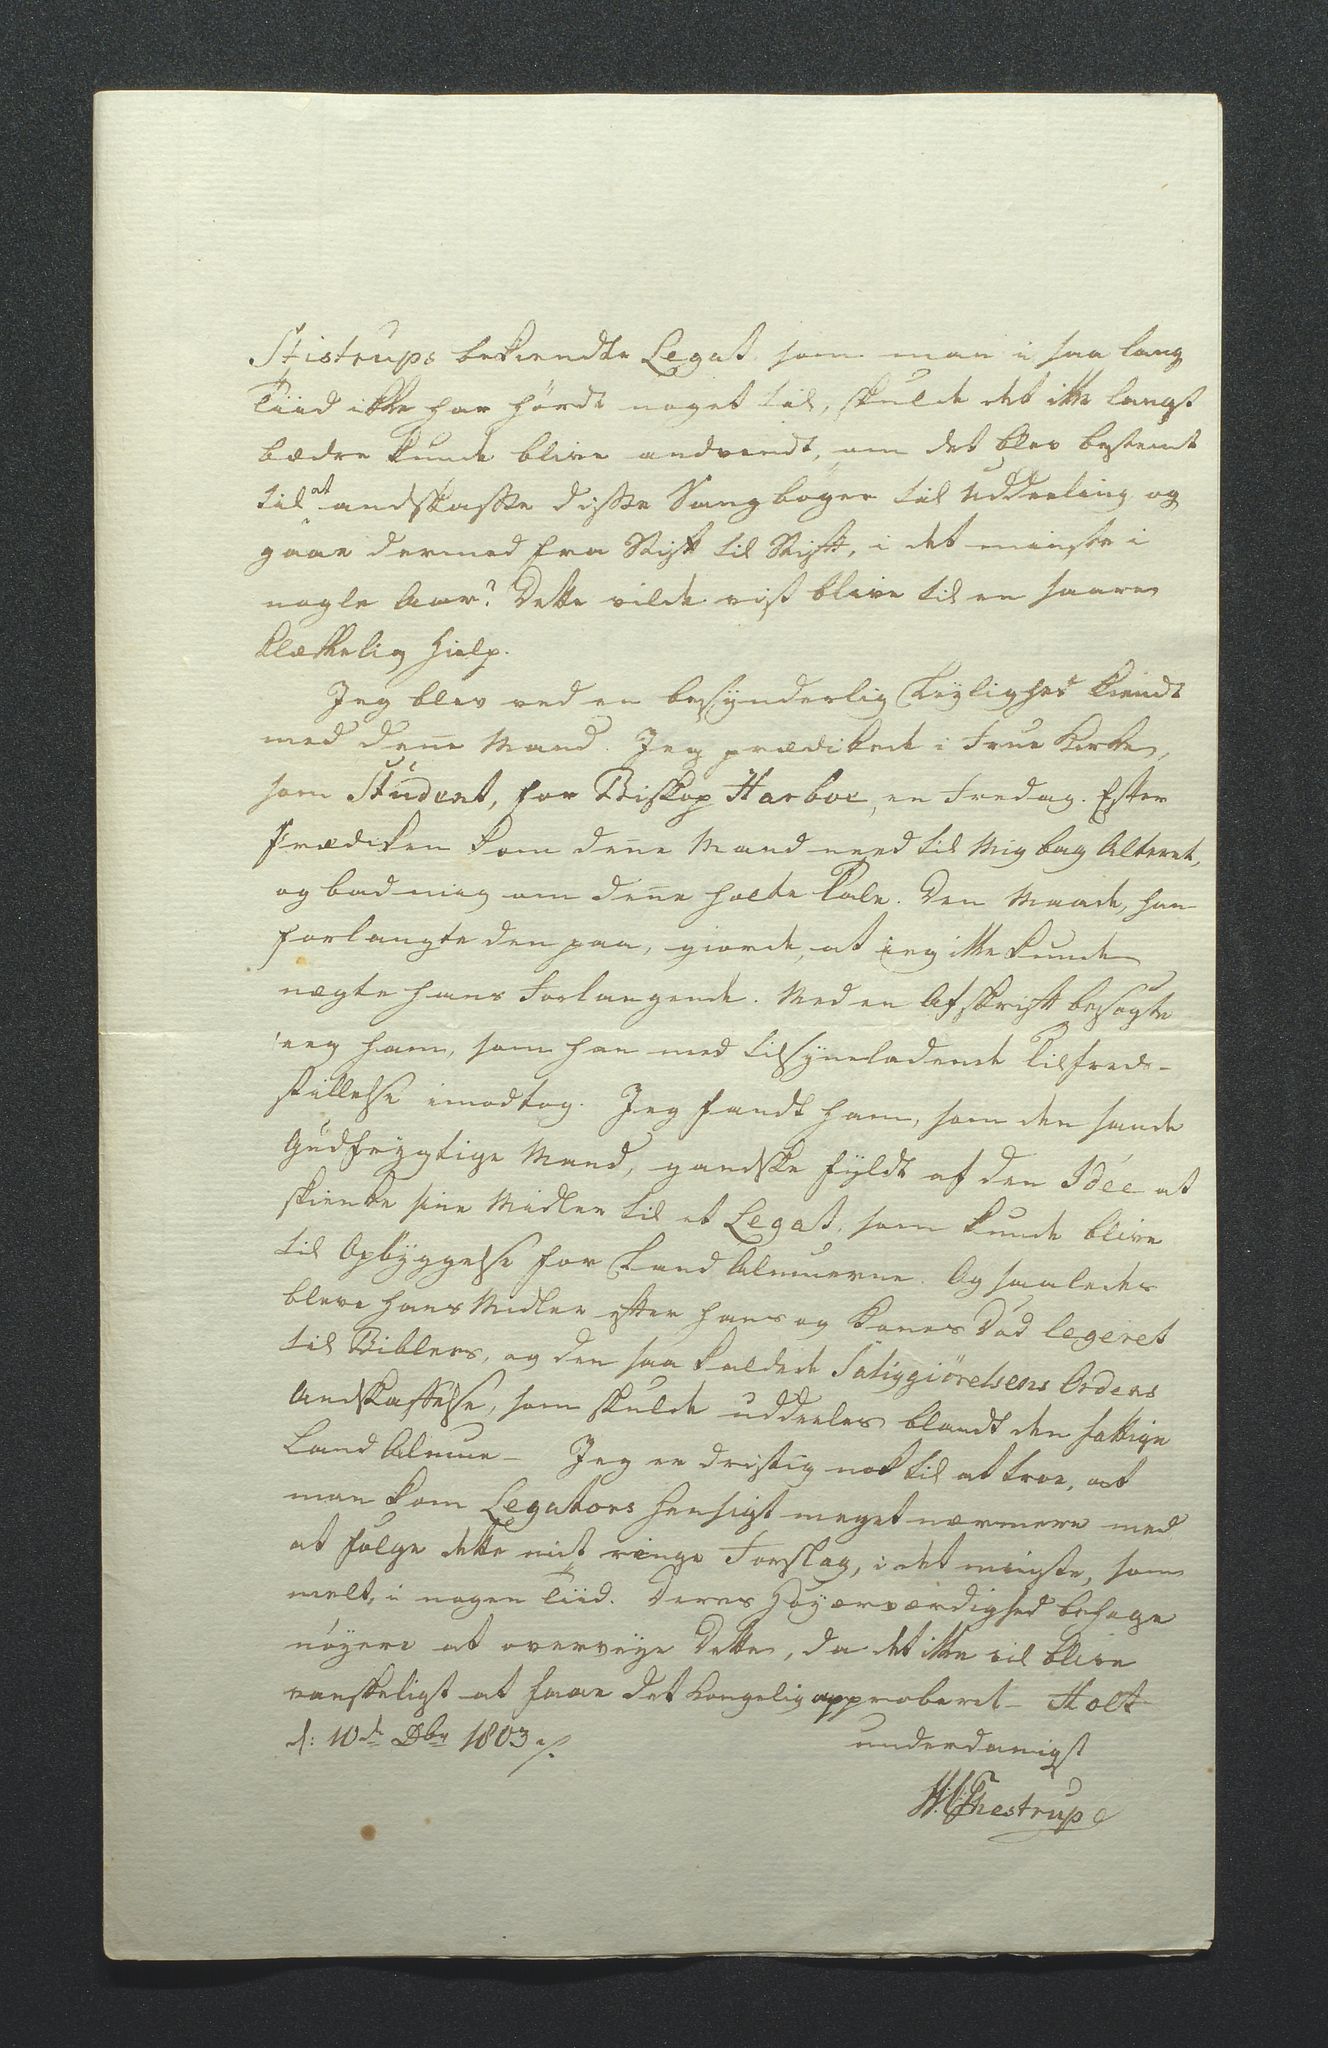 Stistrups bekiendte Legat som man i saa lang
Tiid ikke har hørdt noget til, skulde det ikke langt
bædre kunde blive andvendt, om det blev bestemt
til at andskaffe disse Sangbøger til Uddeeling og
gaae dermed fra Stift til Stift, i det minste i
nogle Aar? Dette vilde vist blive til en saare
klækkelig Hielp.
Jeg blev ved en besynderlig Leylighed kiendt
med denne Mand. Jeg prædikede i Frue Kirke,
som Student, for Biskop Harboe, en Fredag. Efter
Prædiken kom denne Mand need til Mig bag Alteret,
og bad mig om denne holdte Tale. Den Maade, han
forlangte den paa, giorde, at ieg ikke kunde
nægte hans Forlangende. Med en Afskrift besøgte
ieg ham, som han med tilsyneladende Tilfreds-
stillelse imodtog. Jeg fandt ham, som den sande
Gudfrygtige Mand, gandske fyldt af den Idée at
skienke sine Midler til et Legat, som kunde blive
til Opbyggelse for Land Almuerne. Og saaledes
bleve hans Midler efter hans og Kones Død legeret
til Biblers, og den saa kaldede Saliggiørelsens Ordens
Andskaffelse, som skulde uddeeles blandt den fattige
Land Almue - Jeg er dristig nok til at troe, at
man kom Legators Hensigt meget nærmere med
at følge dette mit ringe Forslag, i det mingste, som
melt, i nogen Tiid. Deres Høyærværdighed behage
nøyere at overveye Dette, da det ikke vil blive
vanskeligt at faae det Kongelig approberet - Holt
d: 10de Dbr 1803 ./.
underdanigst
Thestrup